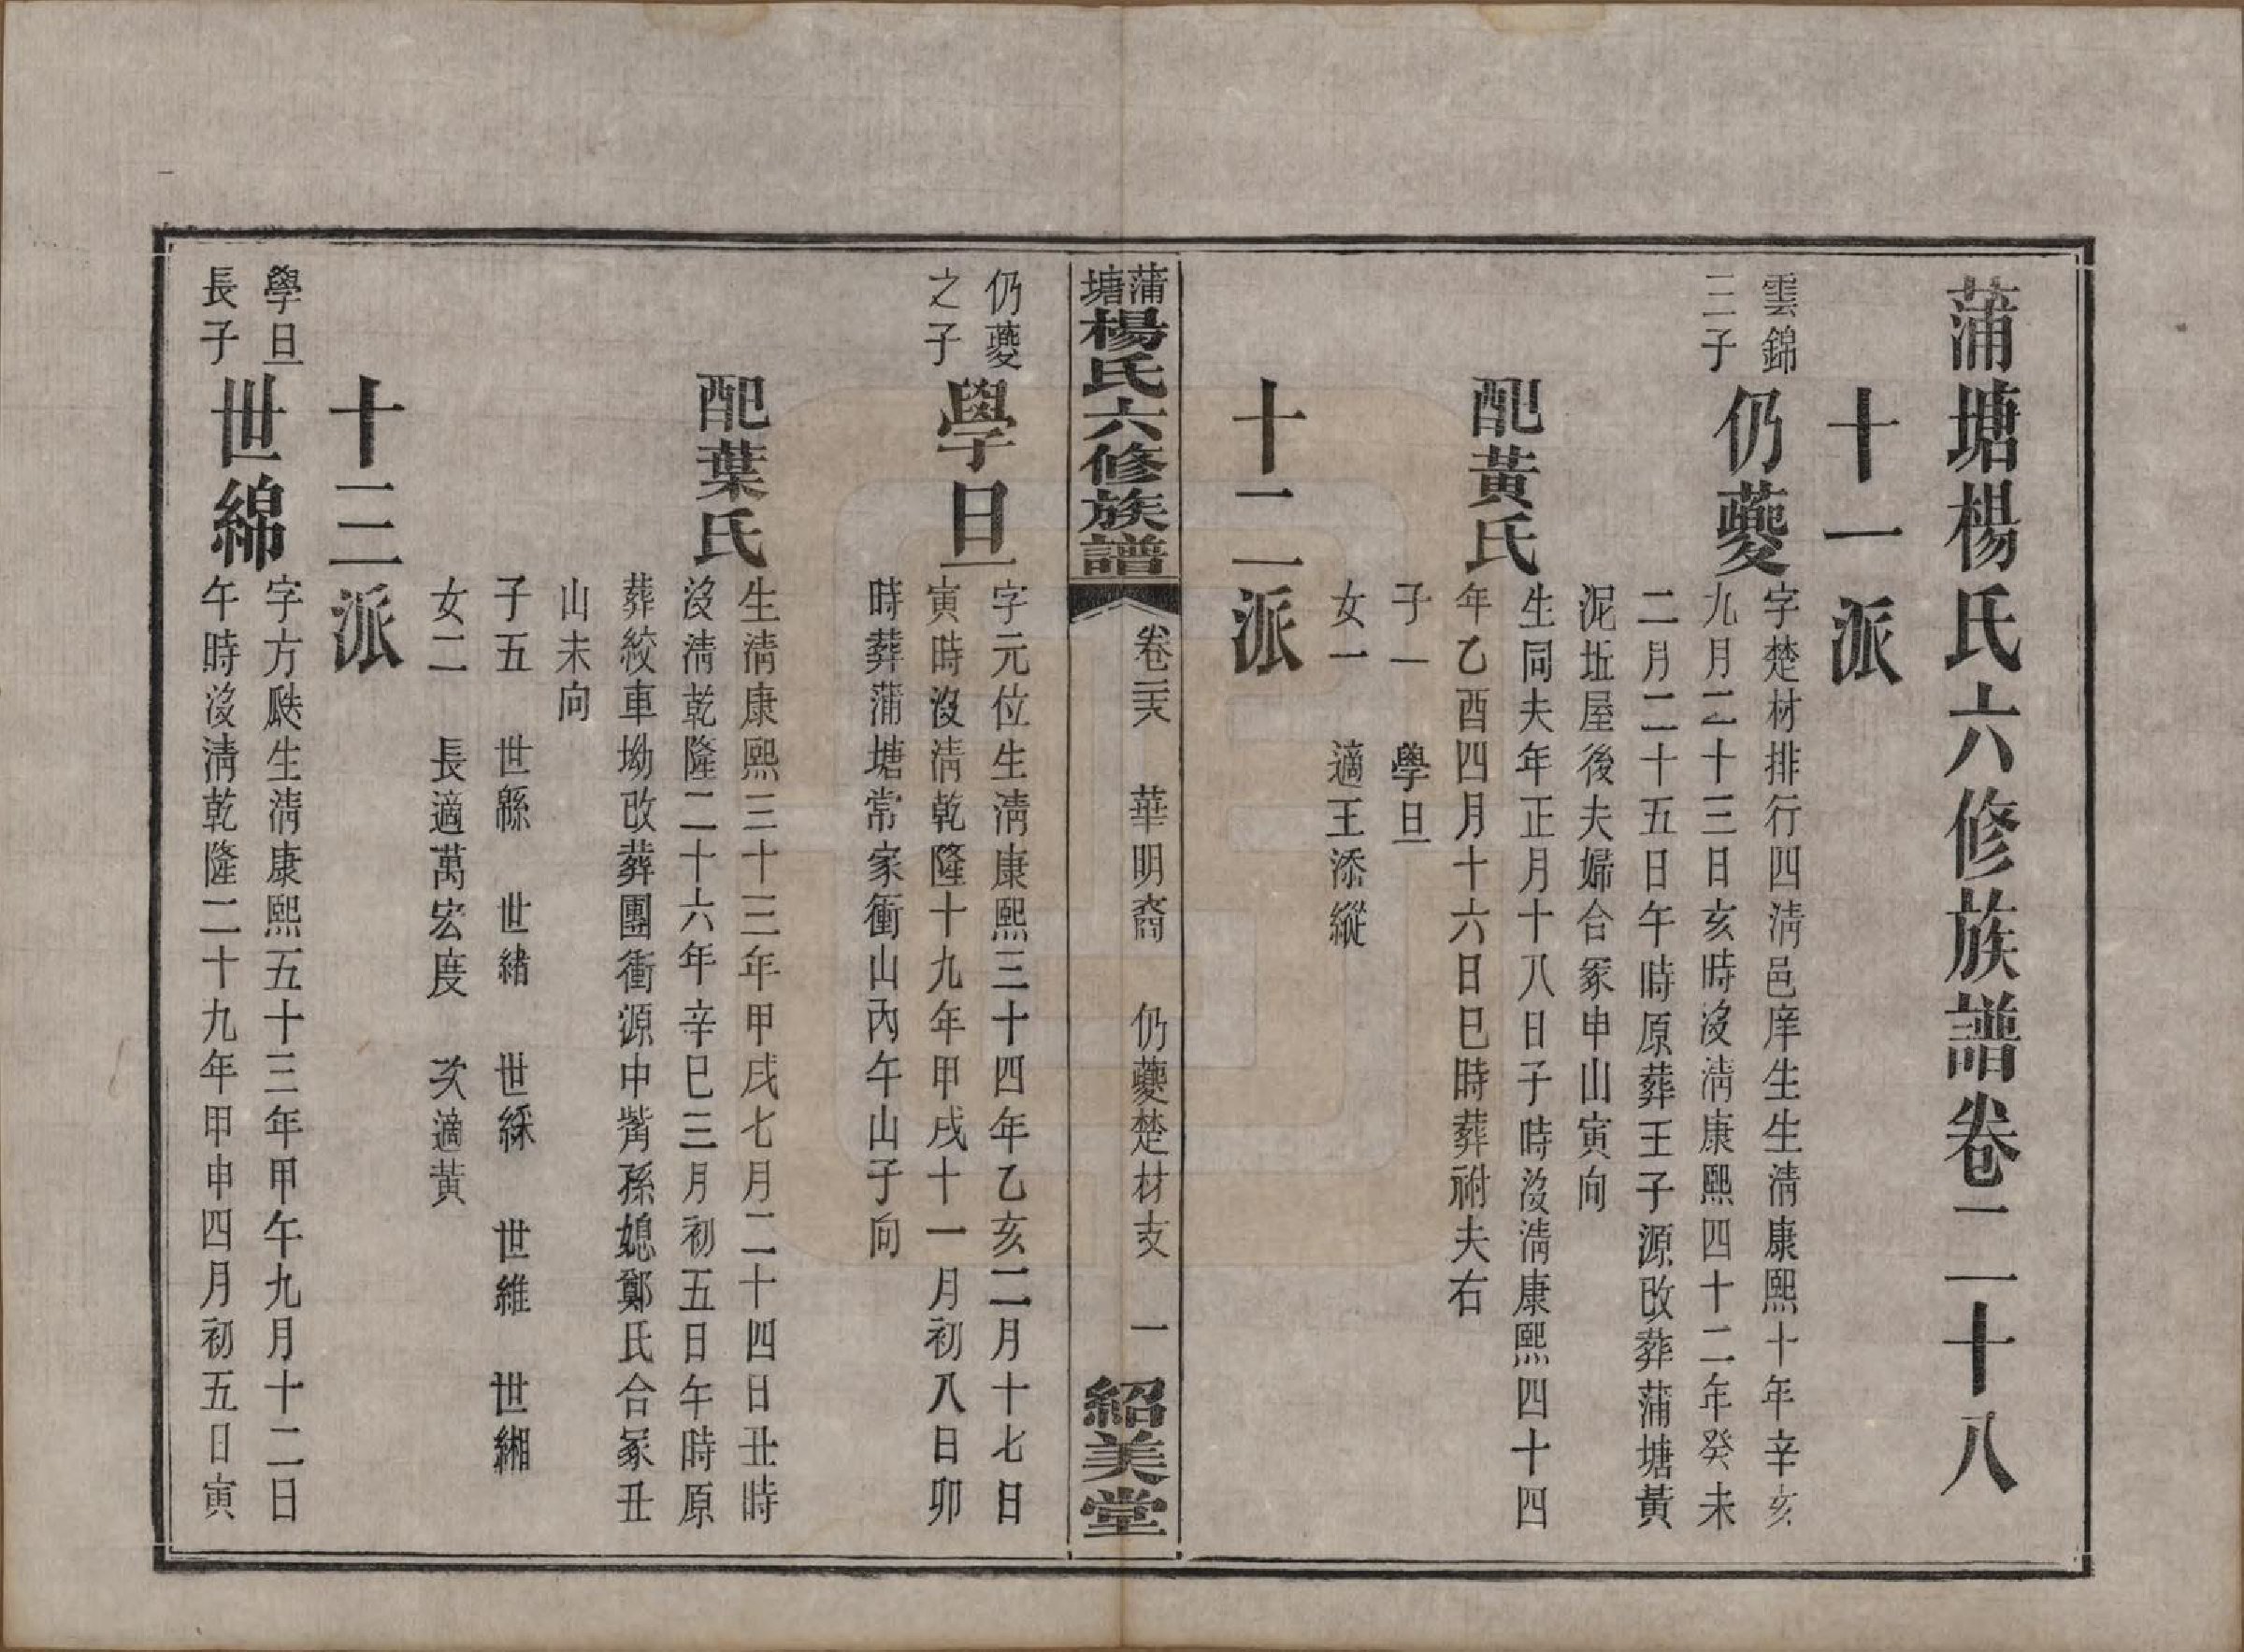 蒲塘楊氏六修族譜卷二十八
十一派
雲錦
三子
仍夔
字楚材排行四淸邑庠生生淸康熙十年辛亥
九月二十三日亥時沒淸康熙四十二年癸未
二月二十五日午時原葬王子源改葬蒲塘黃
泥坵屋後夫婦合冢申山寅向
配黃氏
生同夫年正月十八日子時沒淸康熙四十四
年乙酉四月十六日巳時葬祔夫右
子一　學旦
女一　適王添縱
十二派
蒲塘楊氏六修族譜
卷二十八　華明裔　仍夔楚材支　一
紹美堂
仍夔
之子
學旦
字元位生淸康熙三十四年乙亥二月十七日
寅時沒淸乾隆十九年甲戌十一月初八日卯
時葬蒲塘常家衝山內午山子向
配葉氏
生淸康熙三十三年甲戌七月二十四日丑時
沒淸乾隆二十六年辛巳三月初五日午時原
葬絞車坳改葬團衝源中嘴孫媳鄭氏合冢丑
山未向
子五　世緜　世緒　世綵　世維　世緗
女二　長適萬宏度　次適黃
十三派
學旦
長子
世綿
字方瓞生淸康熙五十三年甲午九月十二日
午時沒淸乾隆二十九年甲申四月初五日寅